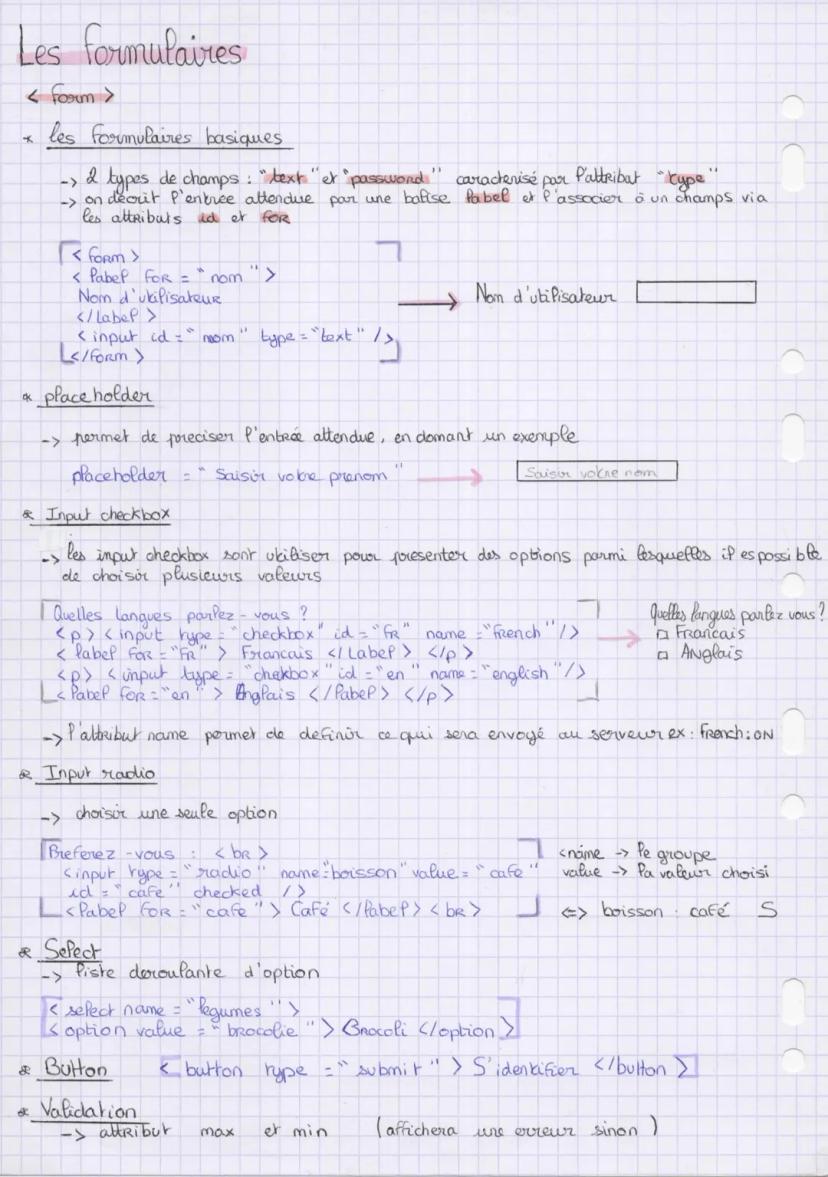 Les formulaires
< form >
* les formulaires basiques
-> 2 types de champs : "text" et "password" caracterisé par l'attribut "type"
-> on décrit l'entrée attendue par une balise label et l'associer à un champs via
les attributs id et for
< form >
< label for = " nom " >
Nom d'utilisateur
</label >
< input id = " nom " type = "text" />
</form >
Nom d'utilisateur
* placeholder
-> permet de preciser l'entrée attendue, en donnant un exemple
placeholder = " Saisir votre prenom "
Saisir votre nom
* Input checkbox
-> les input checkbox sont utiliser pour presenter des options parmi lesquelles il es possible
de choisir plusieurs valeurs
Quelles langues parlez - vous ?
<p> < input type = "checkbox" id = "fr" name = "french" />
< label for = "fr" > Francais </ label > </p>
<p> < input type = "chekbox" id = "en" name = "english" />
< label for = "en" > Anglais </label> </p>
Quelles langues parlez vous ?
□ Francais
□ Anglais
-> l'attribut name permet de definir ce qui sera envoyé au serveur ex : french : on
* Input radio
-> choisir une seule option
Preferez - vous : < br >
< input type = "radio" name = "boisson" value = "cafe"
id = "cafe" checked />
< label for = "cafe" > Café </label> < br >
<name -> le groupe
value -> la valeur choisi
<=> boisson : café S
* Select
-> liste deroulante d'option
< select name = "legumes" >
< option value = "brocolie" > Brocoli </option >
* Button < button type = "submit" > S'identifier </button >
* Validation
-> attribut max et min (affichera une erreur sinon )